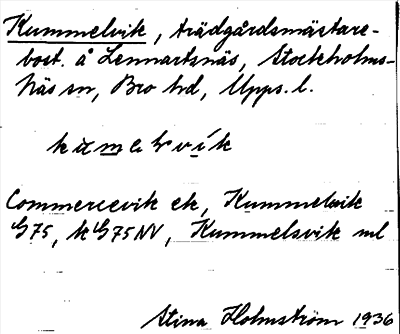 Kummelvik, trädgårdsmästare-
bost. å Lennartsnäs, Stockholms-
Näs sn, Bro hd, Upps. l.
Commercevik ek, Kummelvik
G75, k G75 NV, Kummelsvik ml
Stina Holmström 1936